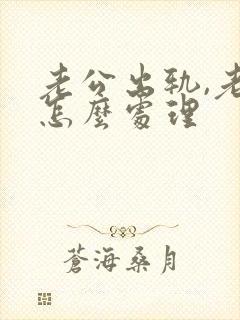 老公出轨,老
怎麼處理
蒼海桑月